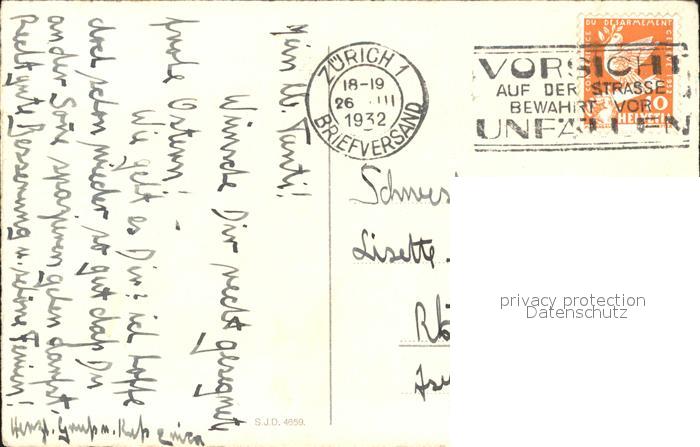 Mein lb. Tanti!
Wünsche Dir recht gesegnete
frohe Ostern!
Wie geht es Dir? ich hoffe
doch schon wieder so gut dass Du
an der Sonne spazieren gehen darfst.
Recht gute Besserung u. schöne Ferien!
Herzl. Gruss u. Kuss Erica
ZÜRICH 1
18-19
26 III
1932
BRIEFVERSAND
VORSICHT
AUF DER STRASSE
BEWAHRT VOR
UNFÄLLEN
DU DESARMEMENT
HELVETIA
Schwes
Lisette
S.J.D. 4659.
privacy protection
Datenschutz